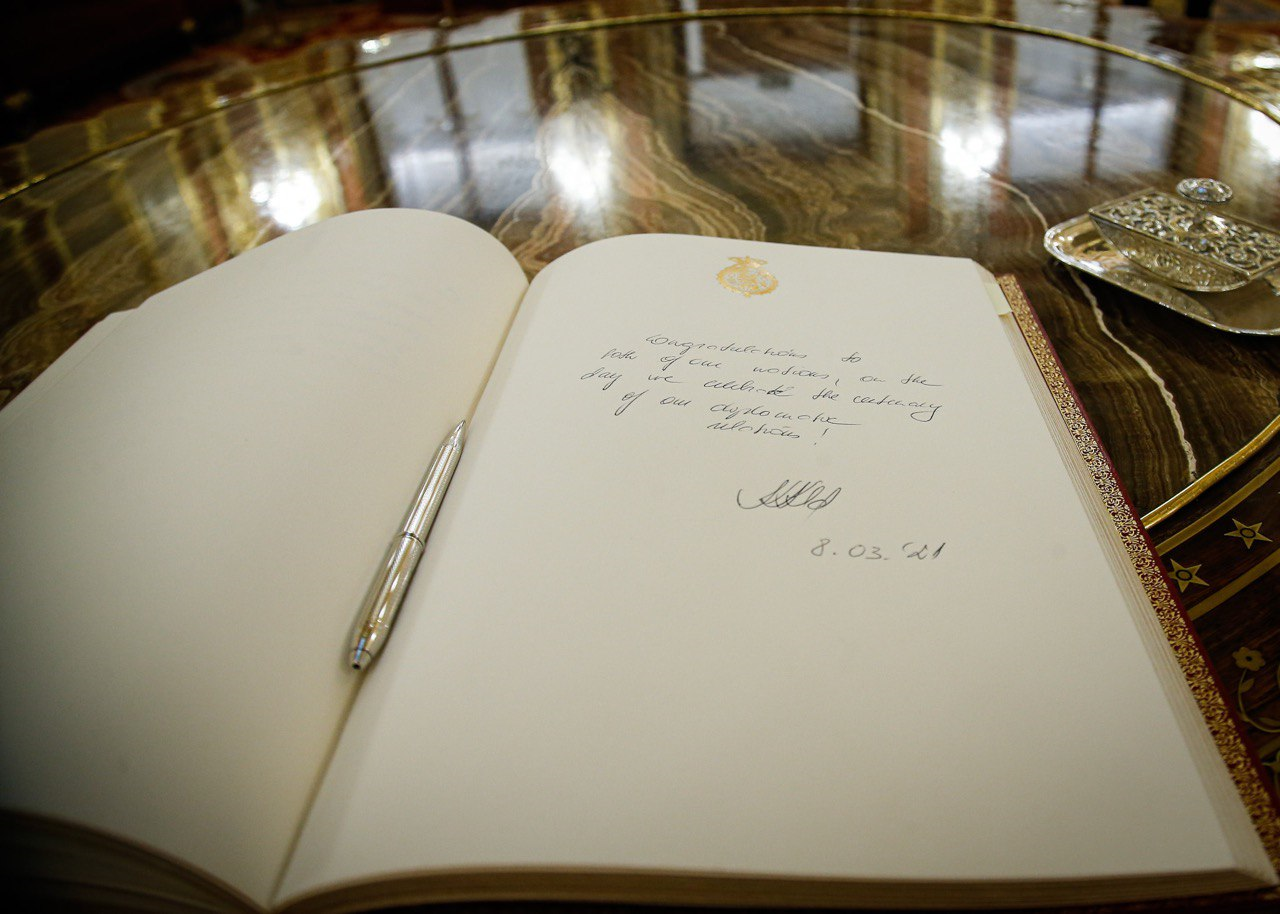 Congratulations to
both of our nations, on the
day we celebrate the centenary
of our diplomatic
relations!
8.03.'21